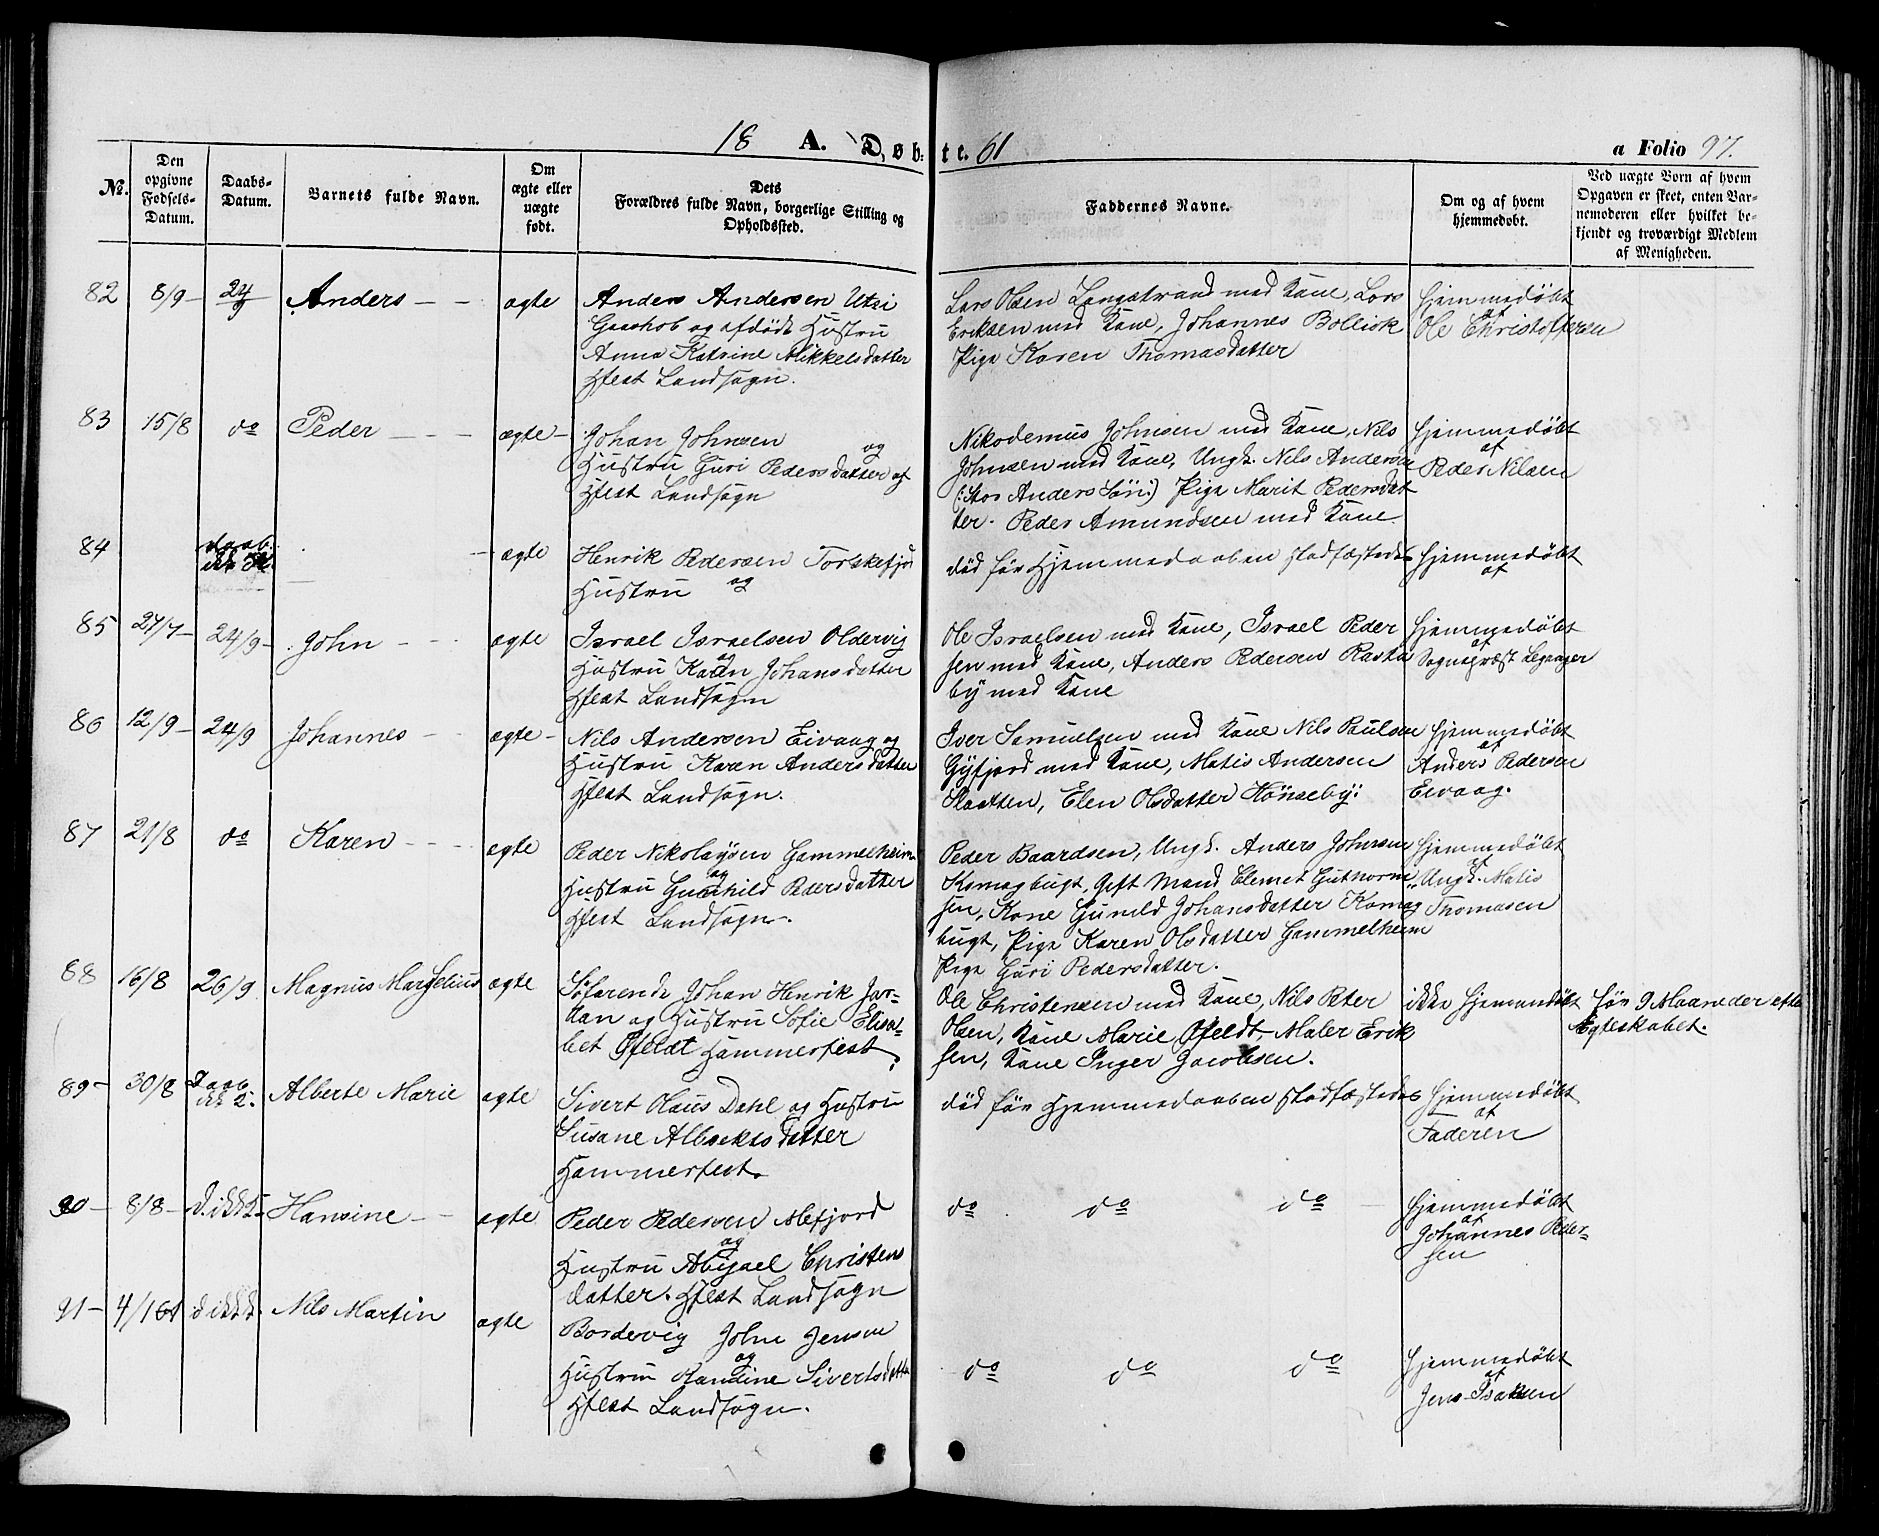 18 A. Døb: te. 61
a Folio 97.
No. Den opgivne Fødsels-Datum. Daabs-Datum. Barnets fulde Navn. Om ægte eller uægte født. Dets Forældres fulde Navn, borgerlige Stilling og Opholdssted. Faddernes Navne. Om og af hvem hjemmedøbt. Ved uægte Børn af hvem Opgaven er skeet, enten Barnemoderen eller hvilket bekjendt og troværdigt Medlem af Menigheden.
82 8/9 - 24/9 Anders - - ægte Anders Andersen Utsi
og afdøde Hustru
Anna Katrine Mikkelsdatter
Hfest Landsogn.
Lars Olsen Langstrand med Kone, Lars
Eriksen med Kone, Johannes Bollick
Pige Karen Thomasdatter
hjemmedøbt
af
Ole Christoffersen
83 15/8 do Peder - - - ægte - Johan Johnsen og
Hustru Guri Pedersdatter af
Hfest Landsogn
Nikodemus Johnsen med Kone, Nils
Johnsen med Kone, Ungk. Nils Andersen
(: Anders Søn:) Pige Marit Pedersdat
ter. Peder Amundsen med Kone.
hjemmedøbt
af
Peder Nilsen
84 - ægte Henrik Pedersen Torskefjord
og
Hustru
død før Hjemmedaaben stadfæstedes
hjemmedøbt
af
85 27/7 - 24/9 - John - ægte Israel Israelsen Oldervig
og
Hustru Karen Johansdatter
Hfest Landsogn
Ole Israelsen med Kone, Israel Peder
sen med Kone, Anders Pedersen Rasta
by med Kone
hjemmedøbt
af
Sognepræst Leganger
86 12/9 - 24/9 Johannes - ægte - Nils Andersen Eivaag og
Hustru Karen Andersdatter
Hfest Landsogn.
Iver Samuelsen med Kone Nils Paulsen
Gyfjord med Kone, Matis Andersen
Slaatten, Elen Olsdatter Hønseby.
hjemmedøbt
af
Anders Pedersen
Eivaag.
87 21/8 do Karen - - - ægte Peder Nikolaysen Gammelheim
og
Hustru Gunhild Pedersdatter
Hfest Landsogn -.
Peder Baardsen, Ungk. Anders Johnsen
Komagbugt, Gift Mand Clemet Guttorm
sen, Kone Guneld Johansdatter Komag
bugt, Pige Karen Olsdatter Gammelheim
Pige Guri Pedersdatter.
hjemmedøbt
af
Ungk. Matis
Thomasen
88 16/8 26/9 Magnus Margelius ægte Søfarende Johan Henrik Jor-
dan og Hustru Sofie Elisa-
bet Ofeldt Hammerfest.
Ole Christensen med Kone, Nils Peter
Olsen, Kone Marie Ofeldt, Maler Erik
sen, Kone Inger Jacobsen.
ikke hjemmedøbt
før 9 Maaneder efter
Ægteskabet.
89 - 30/8 Alberte Marie ægte Sivert Olaus Dahl og Hustru
Susane Albrektsdatter
Hammerfest.
død før Hjemmedaaben stadfæstedes
hjemmedøbt
af
Faderen
90 - 8/8 - Hansine - - ægte Peder Pedersen Alefjord
og
Hustru Abigael Christens
datter. Hfest Landsogn
do do do
hjemmedøbt
af
Johannes Peder-
sen
91 - Nils Martin ægte Bordevig John Jensen
og
Hustru Randine Sivertsdatter
Hfest Landsogn.
do do do
hjemmedøbt
af
Jens Isaksen